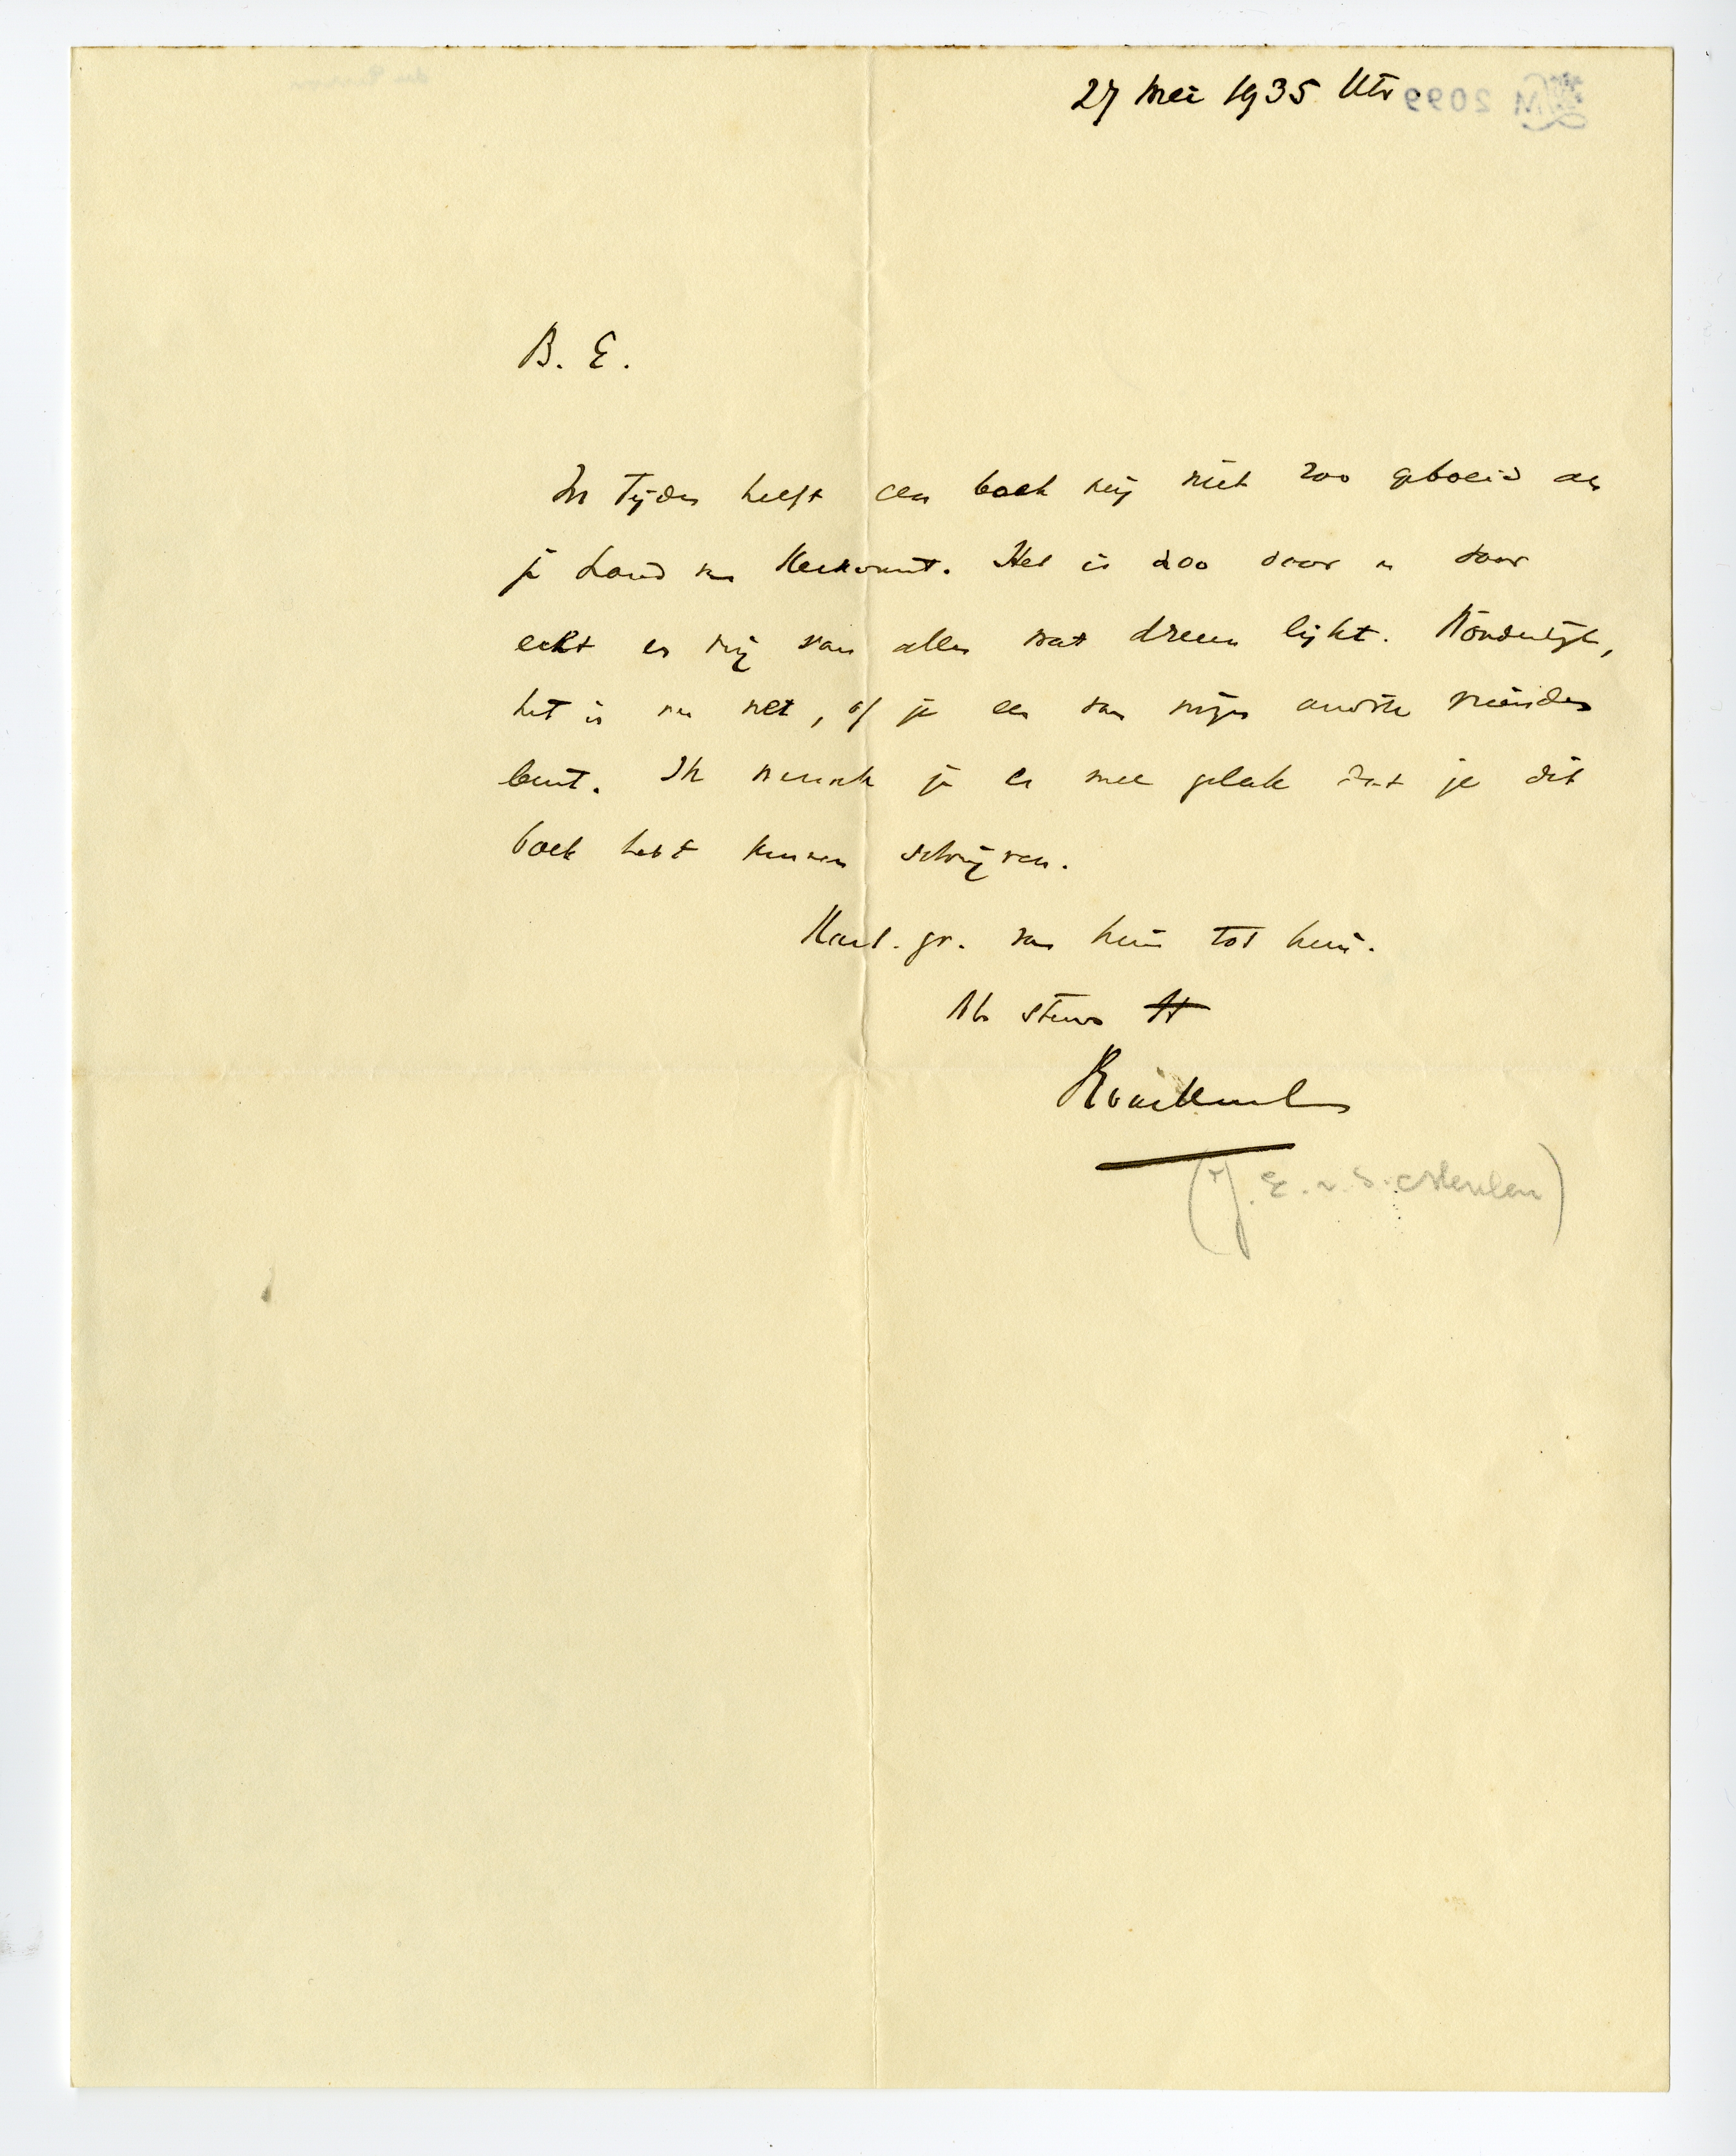 27 Mei 1935 Utr.
B. E.
In tijden heeft een boek mij niet zoo geboeid als
je Land van Herkomst. Het is zoo door en door
echt en vrij van alles wat dreun lijkt. Wonderlijk,
het is nu net, of je een van mijn oudste vrienden
bent. Ik wensch je er mee geluk dat je dit
boek hebt kunnen schrijven.
Hart. gr. van huis tot huis.
Als steeds tt
(J. E. v. d. Meulen)
M 2099